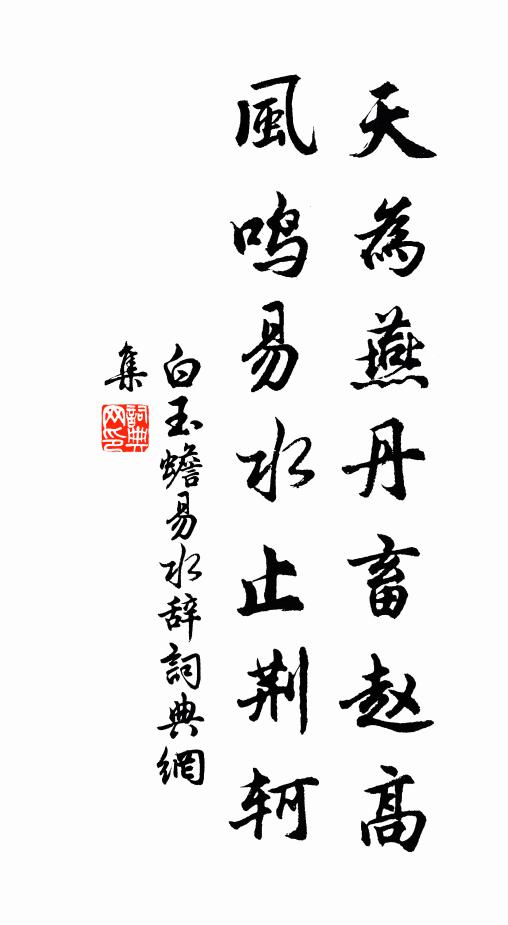 天為燕丹畜赵高
風鸣易水止荆轲
白玉蟾易水辞詞典網
集
詞典
网印